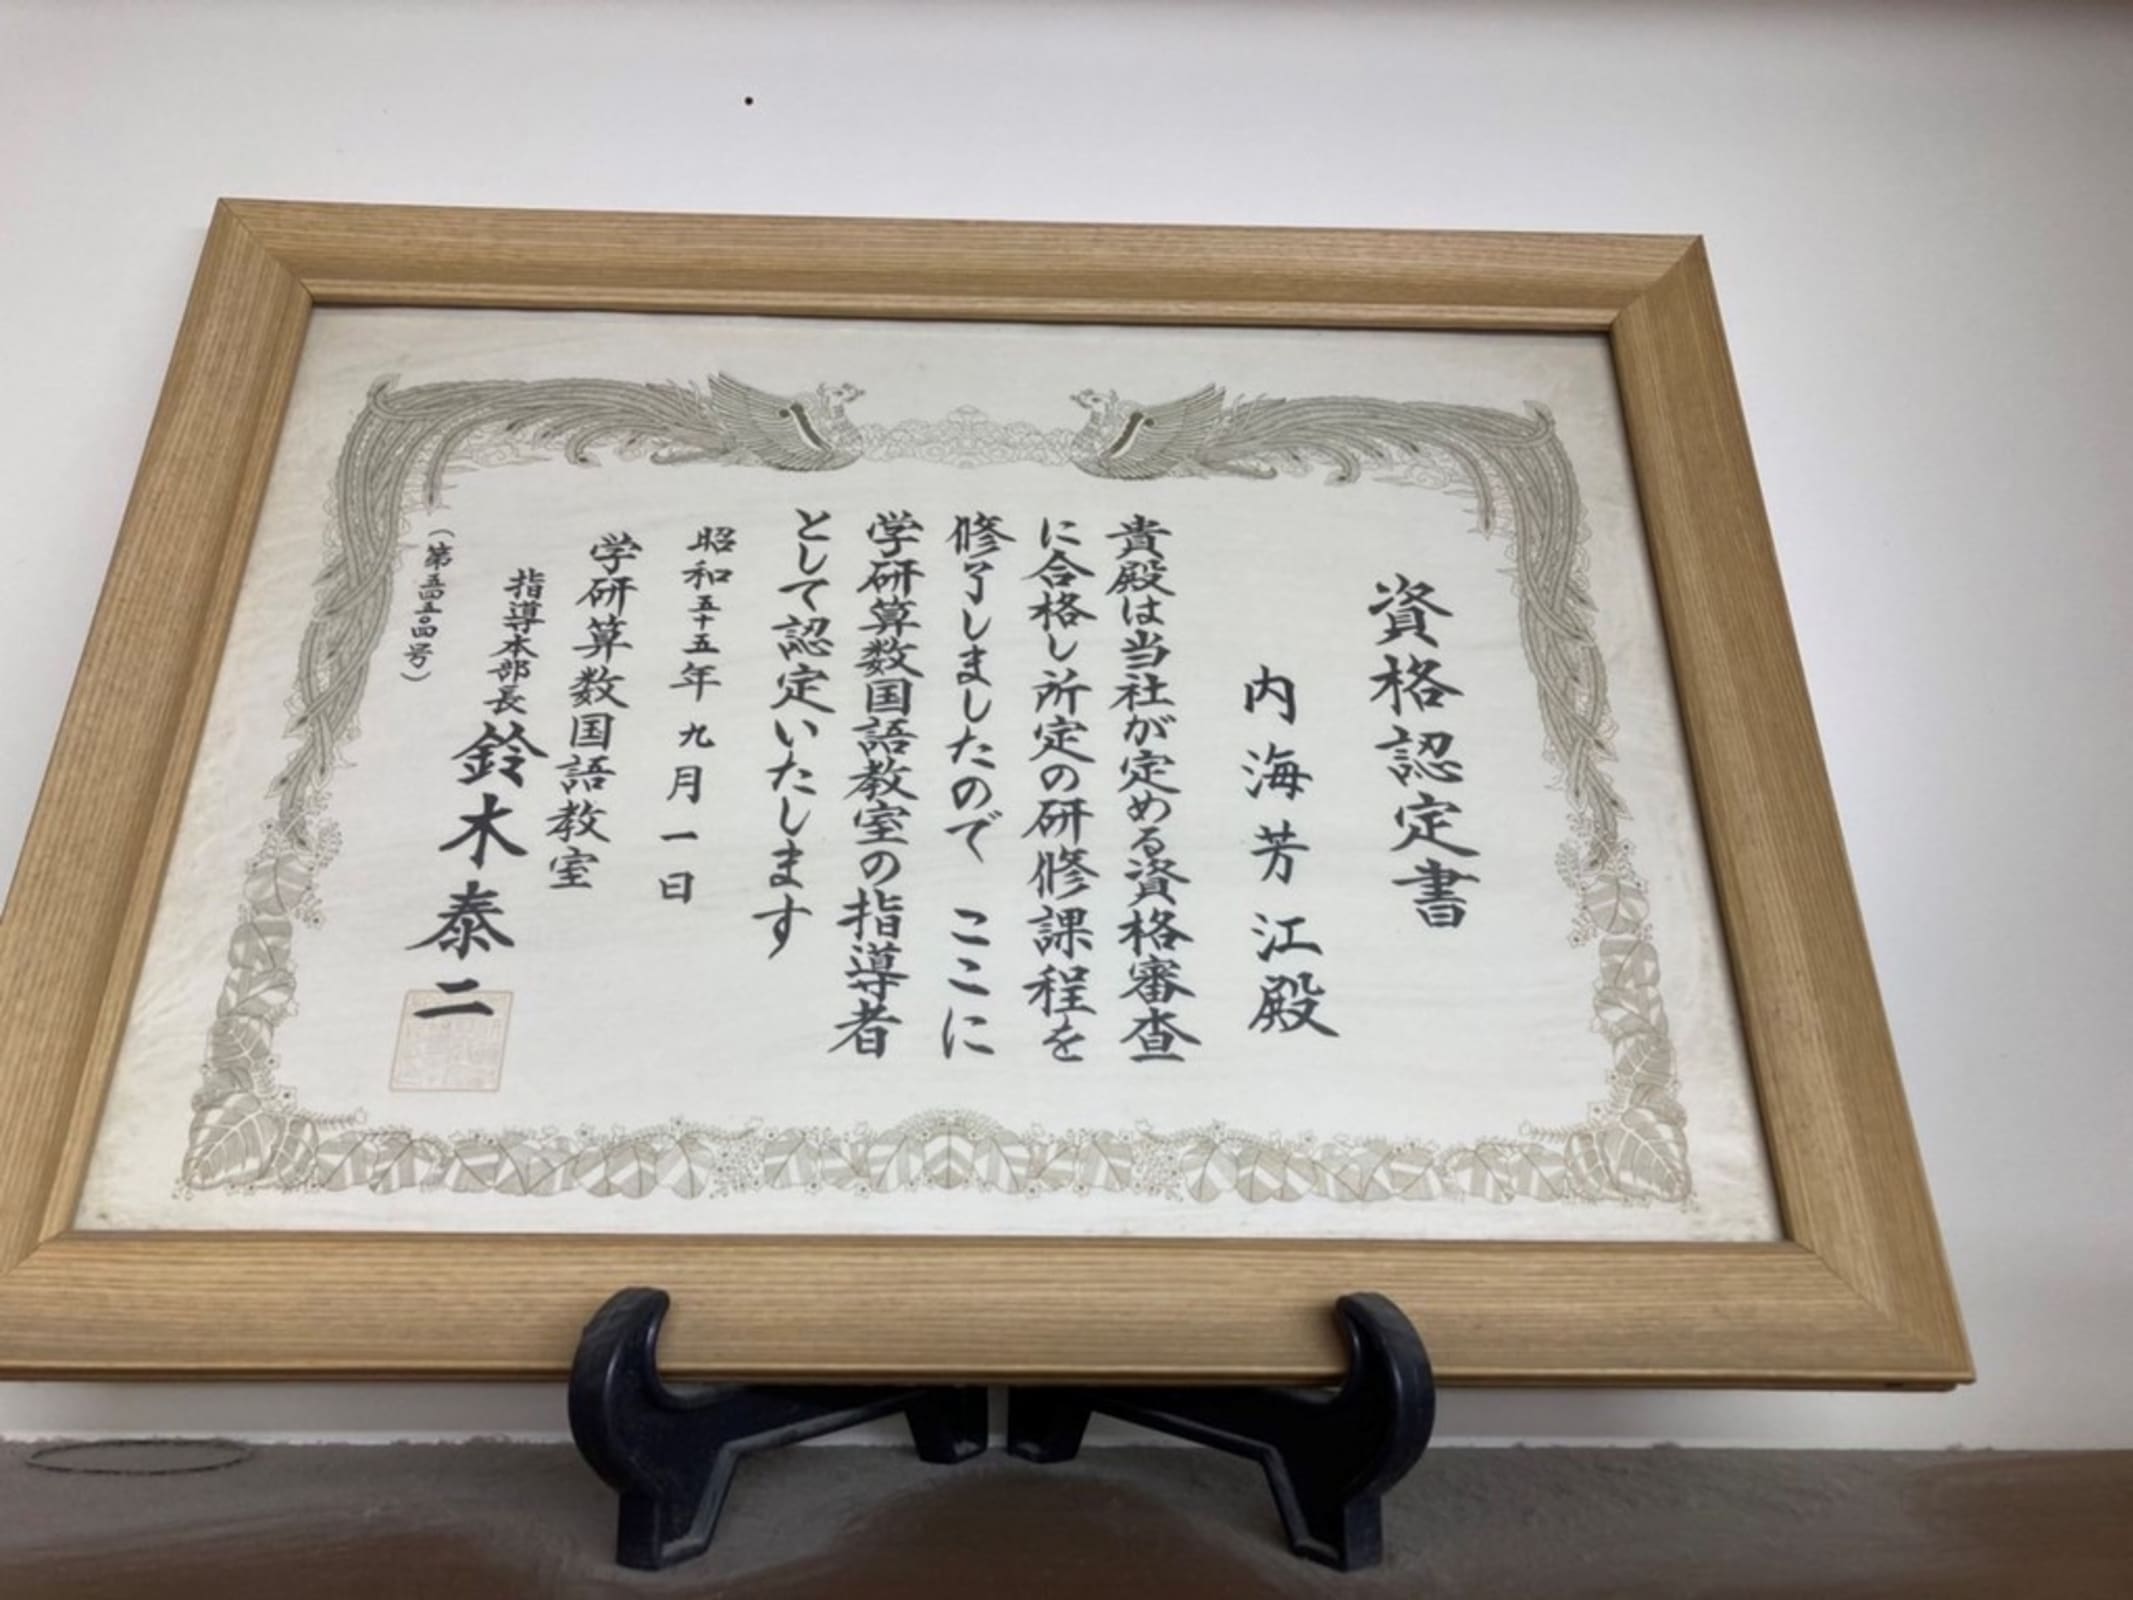 資格認定書
内海芳江殿
貴殿は当社が定める資格審査
に合格し所定の研修課程を
修了しましたので ここに
学研算数国語教室の指導者
として認定いたします
昭和五十五年九月一日
学研算数国語教室
指導本部長 鈴木泰二